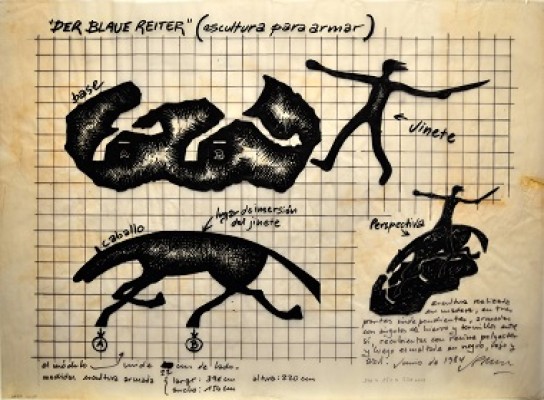 "DER BLAUE REITER" (escultura para armar)
base
Jinete
caballo
lugar de inmersión
del jinete
Perspectiva
A
B
escultura realizada
en madera, en tres
partes independientes, armadas
con ángulos de hierro y tornillos entre
sí, recubiertas con resina
y luego esmaltada en negro, rojo y
Junio de 1984
el módulo mide 22 cm de lado.
medidas escultura armada { largo: 396 cm altura: 220 cm
ancho: 154 cm